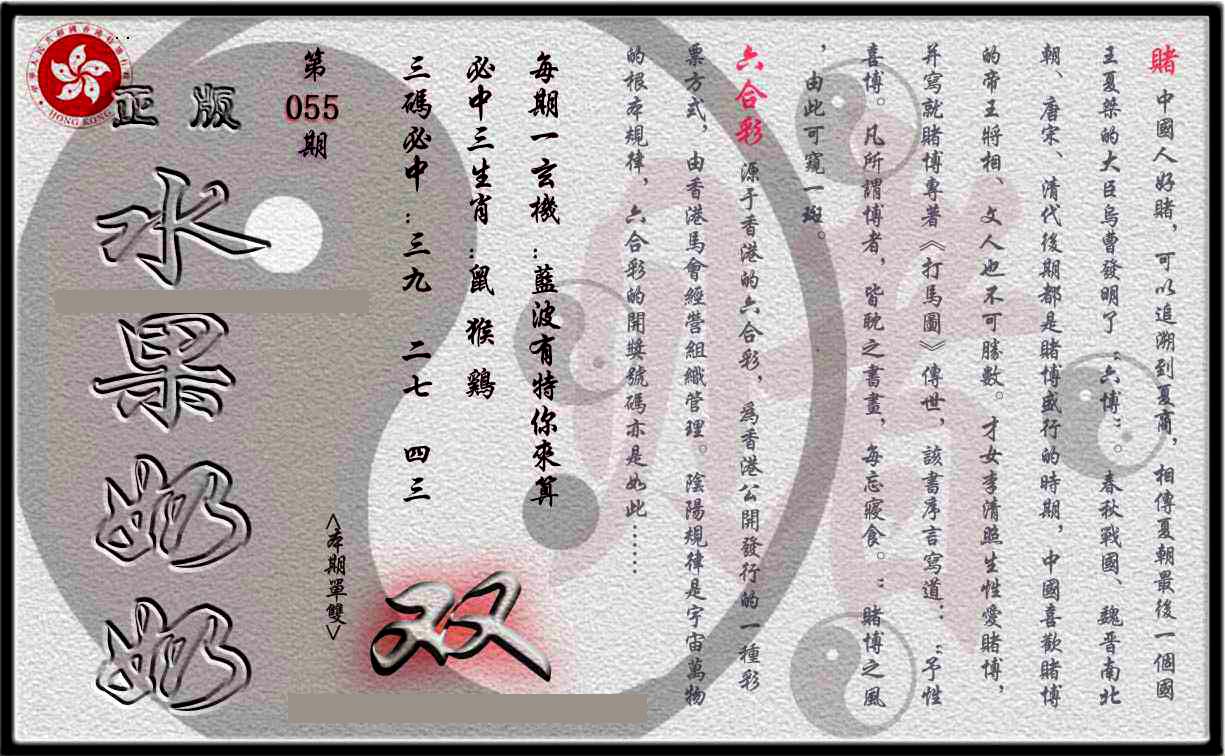 賭 中國人好賭，可以追溯到夏商，相傳夏朝最後一個國
王夏桀的大臣烏曹發明了“六博”。春秋戰國、魏晉南北
朝、唐宋、清代後期都是賭博盛行的時期，中國喜歡賭博
的帝王將相、文人也不可勝數。才女李清照生性愛賭博，
并寫就賭博專著《打馬圖》傳世，該書序言寫道：“予性
喜博。凡所謂博者，皆耽之書畫，每忘寢食。”賭博之風
，由此可窺一斑。
六合彩 源于香港的六合彩，為香港公開發行的一種彩
票方式，由香港馬會經營組織管理。陰陽規律是宇宙萬物
的根本規律，六合彩的開獎號碼亦是如此……
每期一玄機:藍波有特你來算
必中三生肖:鼠 猴 鷄
三碼必中:三九 二七 四三
第055期
<本期單雙>
双
正版
水果奶奶
HONG KONG